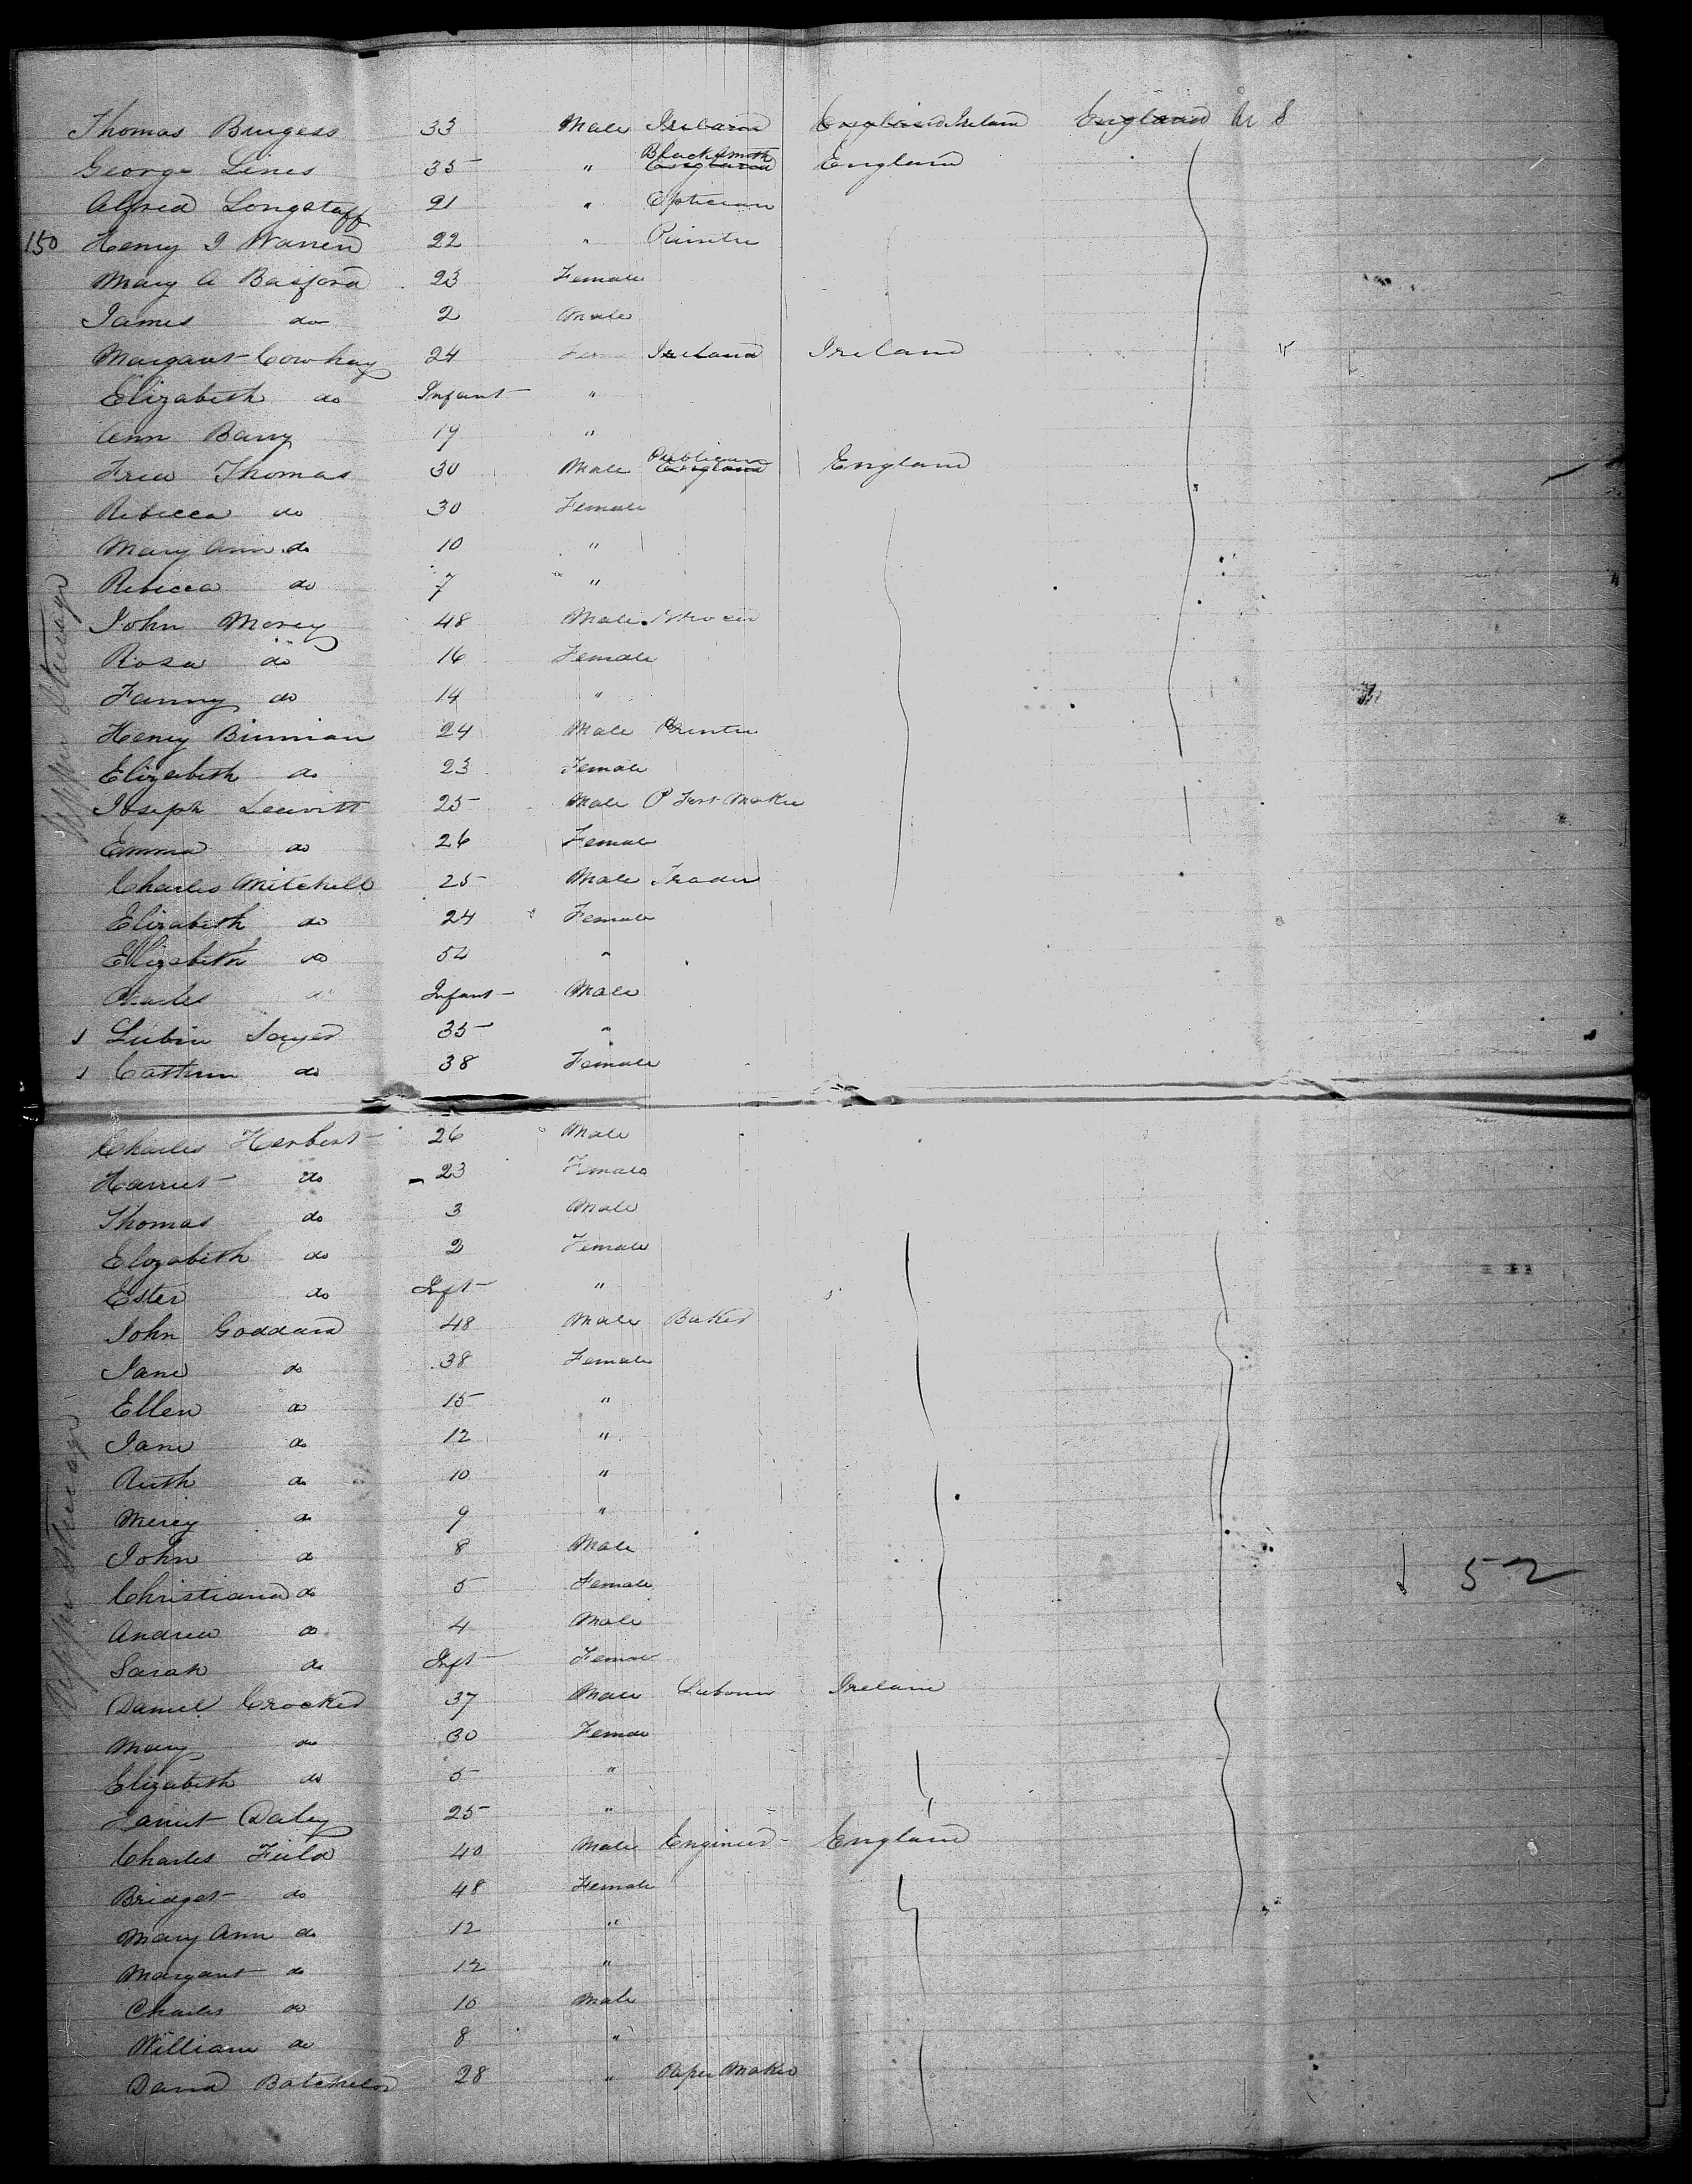 Thomas Burgess 33 Male Ireland England Ireland England U S
George Lines 35 " Blacksmith England England
Alfred Longstaff 21 " Optician
150 Henry J Warren 22 " Painter
Mary A Basford 23 Female
James do 2 Male
Margaret Cowhey 24 Fema Ireland Ireland
Elizabeth do Infant "
Ann Barry 19 "
Fred Thomas 30 Male Publican England England
Rebecca do 30 Female
Mary Ann do 10 "
Rebicca do 7 "
John Morey 48 Male Grocer
Rosa do 16 Female
Fanny do 14 "
Henry Binnian 24 Male Printer
Elizabeth do 23 Female
Joseph Leavitt 25 Male P Maker
Emma do 26 Female
Charles Mitchell 25 Male Trader
Elizabeth do 24 Female
Elizabeth do 54 "
Charles do Infant Male
Lubin Sayer 35 "
do 38 Female
Charles Herbert 26 Male
Harriet do 23 Female
Thomas do 3 Male
Elizabeth do 2 Female
Ester do Inft "
John Goddard 48 Male Baker
Jane do 38 Female
Ellen do 15 "
Jane do 12 "
Ruth do 10 "
Mercy do 9 "
John do 8 Male
Christiana do 5 Female
52
Andrew do 4 Male
Sarah do Inft Female
Daniel Crocker 37 Male Labourer Ireland
Mary do 30 Female
Elizabeth do 5 "
Daley 25 "
Charles Field 40 Male Engineer England
Bridget do 48 Female
Mary Ann do 12 "
Margaret do 12 "
Charles do 10 Male
William do 8 "
David Batchelor 28 " Paper Maker
Upper Steerage
Upper Steerage